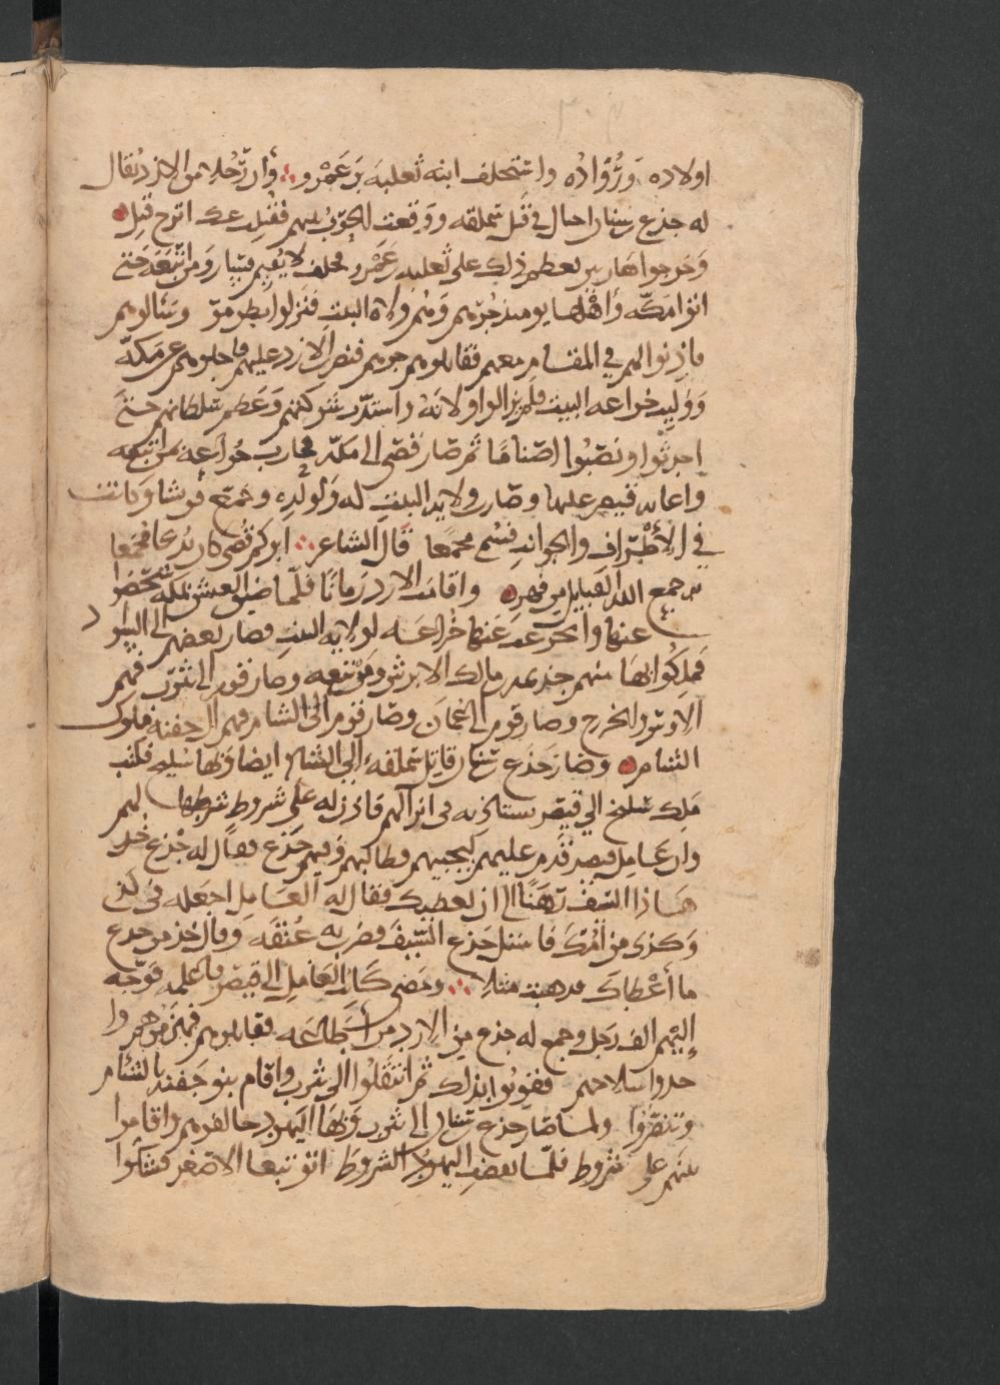 اولاده وروّاده واستخلف ابنه ثعلبة بن عَمْرو وأن رجلا من الازد يقال
له جذع بن سنان احتال في قتل سملقه ووقعت الحرب بينهم فقتلت عك ابرح قتل
وخرجوا هاربين فعظم ذلك على ثعلبه بن عَمْرو فحلف لا يُقيم فساروا ومن اتبعه حتى
اتوا مكّه وأهلها يومئذ جُرْهم وهُم ولاة البيت فنزلوا بطن مرّ وسألوهم
ان ياذنوا لهم في المقام معهم فقاتلوهم جرهم فنصر الازد عليهم فاجلوهم عن مكّة
ووليت خزاعه البيت فلم يزالوا ولاتهُ واشتدّت شوكتهم وعظم سلطانهم حتى
احدثوا ونصبُوا اصنامًا ثم صار قصى الى مكة فحارب خُزاعه بمن اتبعه
واعانه قيصر عليها وصارت ولاية البيت له ولولده وجمع قريشا وكانت
في الأطراف والجوانب فسُمي مجمعا قال الشاعر ابوكم قُصى كان يُدعا مجمعا
به جمع الله القبايل من فهر واقامت الازد زمانا فلمّا ضيق العيش بمكة شخصُوا
عنها وانخزعت عنها خزاعه لولاية البيت فصار بعضهم الى السواد
فملكُوا بها منهم جذيمه بن مالك الابرش ومن تبعه وصار قوم الى يثرب فهم
الاوس والخزرج وصار قوم الى عُمان وصار قوم الى الشام فهم آل جفنة ملوك
الشام وصار جَذع بن سنان قاتل سملقه الى الشام ايضا وبها سليح فكتب
ملك سليح الى قيصر يستاذنه في انزالهم فاذن له على شروط شرطها لهم
وان عامل قيصر قدم عليهم ليجبيهم فطالبهم وفيهم جذع فقال له جذع خذ
هاذا السيف رهنًا الى ان نعطيك فقال له العامل اجعله في كذى
وكذى من امّك فاستل جذع السيف فضرب به عُنقه وقال خذ من جذع
ما أعْطاك فذهبت مثلا ومضى كاتب العامل الى قيصر فاعلمه فوجه
إليهم الف رجل وجمع له جذع من الازد من أطاعه فقاتلوهم فهزموهم وا
خذوا سلاحهم فقووا بذلك ثم انتقلوا الى يثرب واقام بنو جفنة بالشام
وتنصّروا ولما صار جذع بن سنان الى يثرب وبها اليهود حالفوهم واقاموا
بينهم على شروط فلمّا نقضت اليهود الشروط اتوا تبعا الاصغر فشكوا